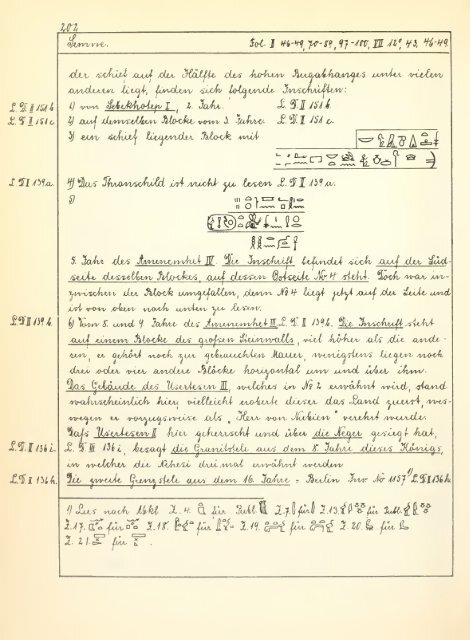 202
Semne. Fol. II 46-49, 70-89, 97-100, VII 12°, 43, 46-49.
der schief auf der Hälfte des hohen Bergabhanges unter vielen
anderen liegt, finden sich folgende Inschriften:
L. D. II 151 b 1) von Sebekhotep I, 2. Jahr. L. D. II 151 b
L. D. II 151 c 2) auf demselben Blocke vom 3. Jahre. L. D. II 151 c.
3) ein schief liegender Block mit
L. D. II 139 a 4) Das Thronschild ist nicht zu lesen L. D. II 139 a.
5)
5. Jahr des Amenemhet IV. Die Inschrift befindet sich auf der Süd-
seite desselben Blockes, auf dessen Ostseite No 4 steht. Doch war in-
zwischen der Block umgefallen, denn No 4 liegt jetzt auf der Seite und
ist von oben nach unten zu lesen.
L. D. II 139 b 6) Vom 5. und 9 Jahre des Amenemhet III L. D. II 139 b. Die Inschrift steht
auf einem Blocke des großen Steinwalls, viel höher als die ande-
ren, er gehört noch zur gebauchten Mauer, wenigstens liegen noch
drei oder vier andere Blöcke horizontal um und über ihm.
Das Gebäude des Usertesen III, welches in No 2 erwähnt wird, stand
wahrscheinlich hier, vielleicht eroberte dieser das Land zuerst, wes-
wegen er vorzugsweise als „Herr von Nubien" verehrt wurde.
L. D. II 136 i. Daß Usertesen III hier geherrscht und über die Neger gesiegt hat,
L. D. II 136 i, besagt die Granitstele aus dem 8. Jahre dieses Königs,
in welcher die Nehesi dreimal erwähnt werden
L. D. II 136 h. Die zweite Grenzstele aus dem 16. Jahre = Berlin Inv No 1157 1) L. D. II 136 h
1) Lies nach Abkl. Z. 4. für Publ. Z. 7. für Z. 13. für Publ.
Z. 17. für Z. 18. für Z. 19. für Z. 20. für
Z. 21. für .